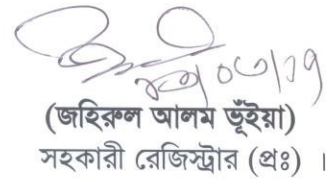 (জহিরুল আলম ভূঁইয়া)
সহকারী রেজিস্ট্রার (প্রঃ) ।